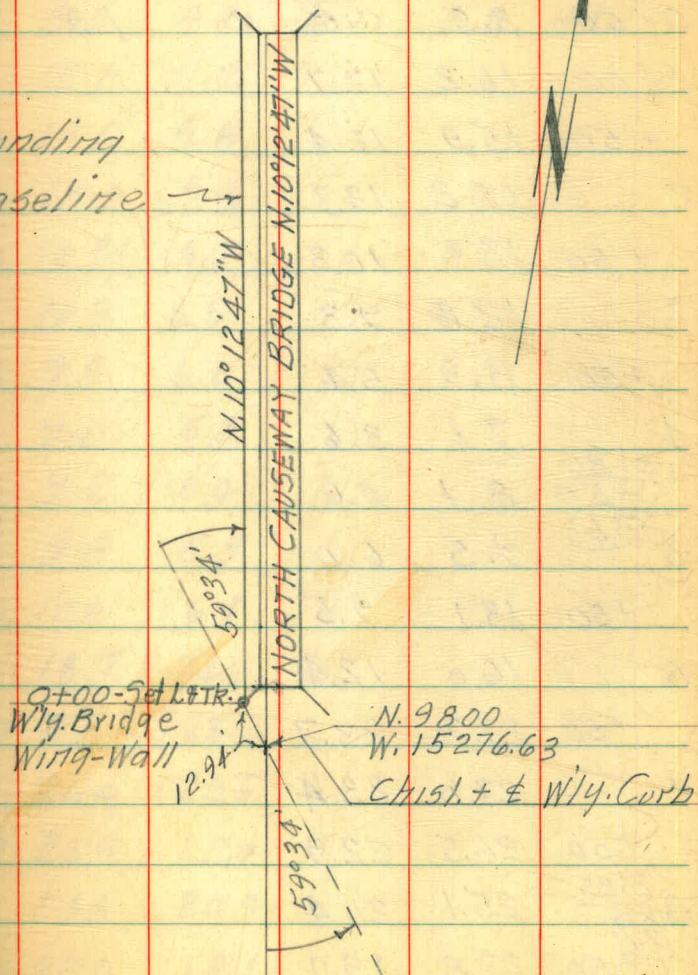 N
nding
aseline
N.10°12'47"W
NORTH CAUSEWAY BRIDGE N.10°12'47"W
59°34'
0+00-Set L&Tk.
W'ly. Bridge
Wing-Wall
12.94'
N. 9800
W. 15276.63
Chisl. + ₵ W'ly. Curb
59°34'